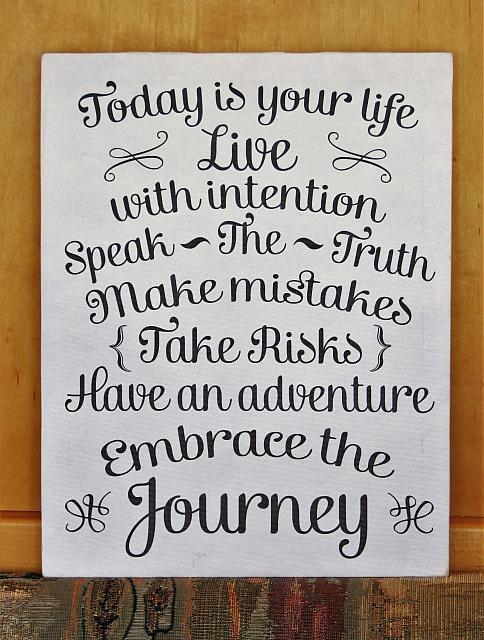 Today is your life
Live
with intention
Speak ~ The ~ Truth
Make mistakes
{ Take Risks }
Have an adventure
Embrace the
Journey